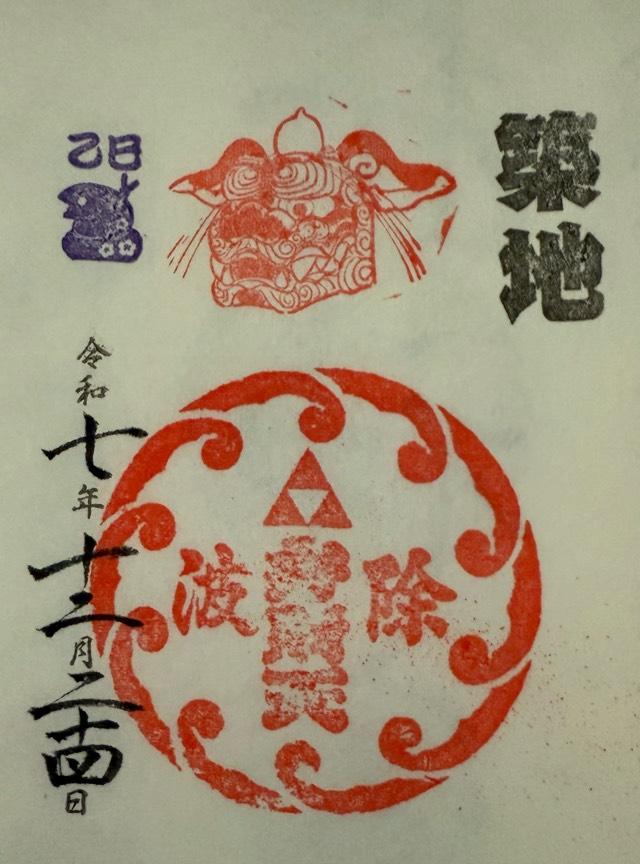 築地
波除
財天
乙巳
令和七年十二月二十四日